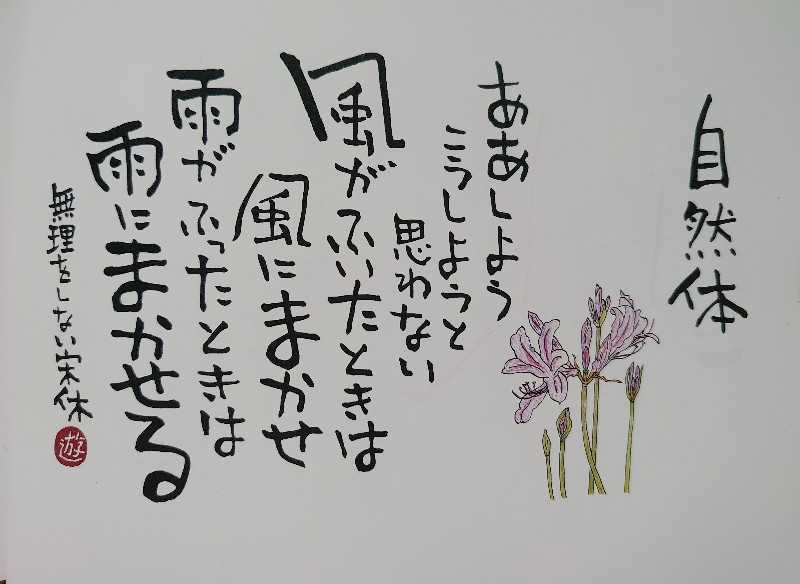 自然体
ああしよう
こうしようと
思わない
風がふいたときは
風にまかせ
雨がふったときは
雨にまかせる
無理をしない宗休
遊